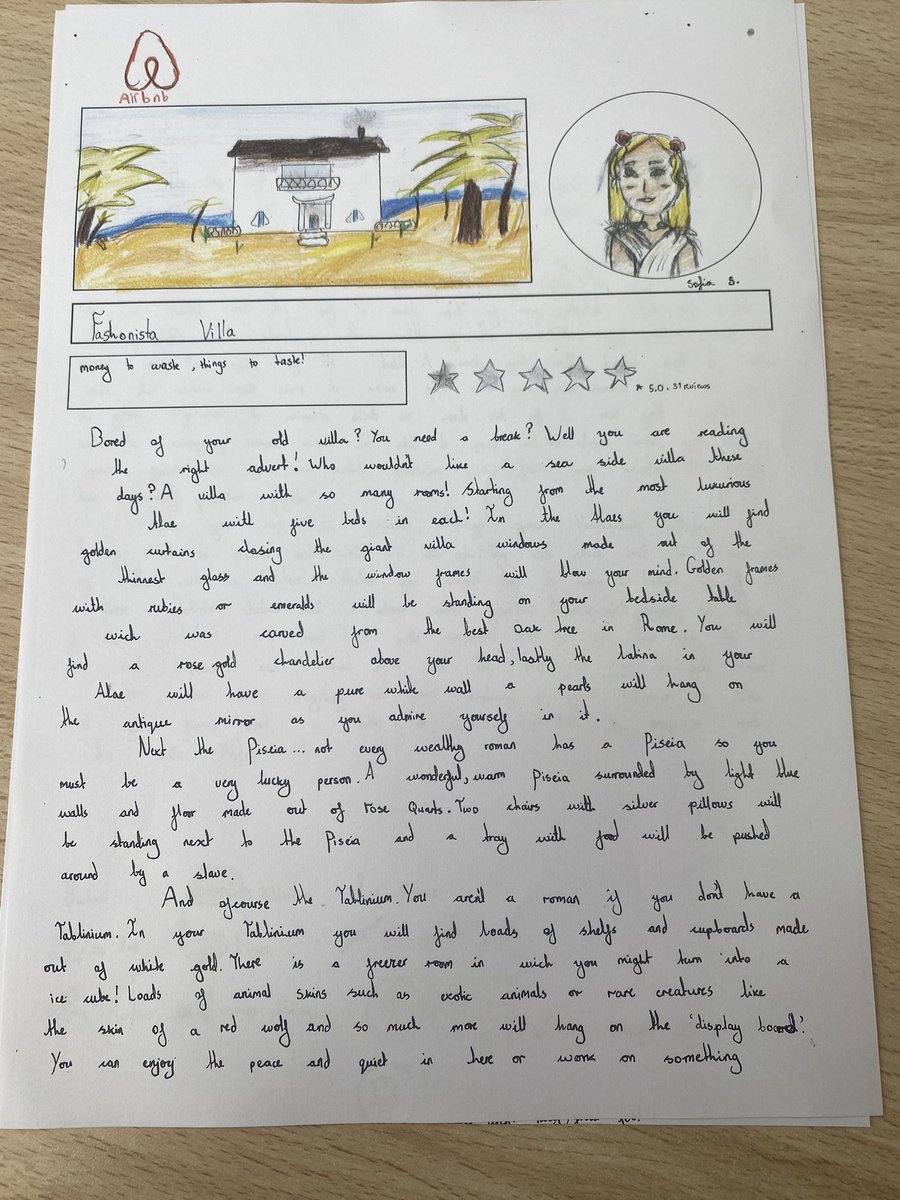 Airbnb
Sofia S.
Fashonista Villa
money to waste, things to taste!
5.0 . 31 reviews
Bored of your old villa? You need a break? Well you are reading
the right advert! Who wouldn't like a sea side villa these
days? A villa with so many rooms! Starting from the most luxurious
Alae with five beds in each! In the Alaes you will find
golden curtains closing the giant villa windows made out of the
thinnest glass and the window frames will blow your mind. Golden frames
with rubies or emeralds will be standing on your bedside table
wich was carved from the best oak tree in Rome. You will
find a rose gold chandelier above your head, lastly the latina in your
Alae will have a pure white wall a pearls will hang on
the antique mirror as you admire yourself in it.
Next the Piscia... not every wealthy roman has a Piscia so you
must be a very lucky person. A wonderful, warm Piscia surrounded by light blue
walls and floor made out of rose Quarts. Two chairs with silver pillows will
be standing next to the Piscia and a tray with food will be pushed
around by a slave.
And ofcourse the Tablinium. You aren't a roman if you don't have a
Tablinium. In your Tablinium you will find loads of shelfs and cupboards made
out of white gold. There is a freezer room in wich you might turn into a
ice cube! Loads of animal skins such as exotic animals or rare creatures like
the skin of a red wolf and so much more will hang on the 'display board'.
You can enjoy the peace and quiet in here or work on something